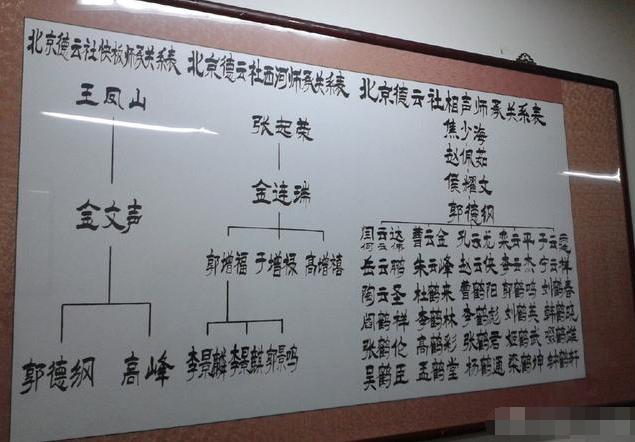 北京德云社快板师承关系表
王凤山
金文声
郭德纲 高峰
北京德云社西河师承关系表
张起荣
金连瑞
郭增福 于增禄 高增禧
李景麒 李景麟 郭景鸣
北京德云社相声师承关系表
焦少海
赵佩茹
侯耀文
郭德纲
曹云金 孔云龙 栾云平 于云霆
岳云鹏 朱云峰 赵云侠 李云杰 宁云祥
陶云圣 杜鹤来 曹鹤阳 郭鹤鸣 刘鹤春
阎鹤祥 李鹤林 李鹤彪 刘鹤英 韩鹤晓
张鹤伦 高鹤彩 张鹤君
吴鹤臣 孟鹤堂 杨鹤通 梁鹤坤